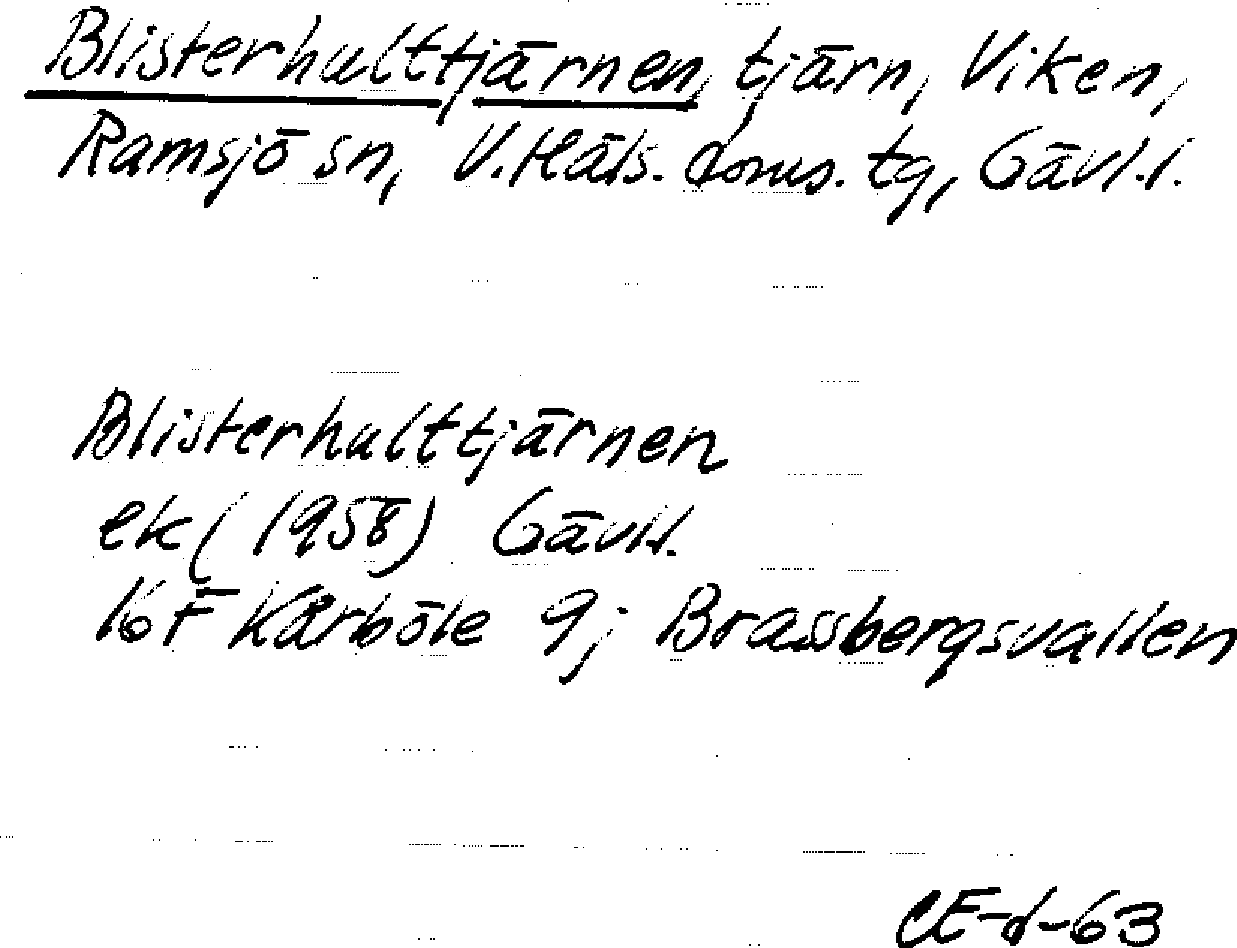 Blisterhulttjärnen, tjärn, Viken,
Ramsjö sn, V. Häls. doms. tg, Gävl.l.
Blisterhulttjärnen
ek (1958) Gävl.l.
16 F Kårböle 9j Brassbergsvallen
CE-d-63